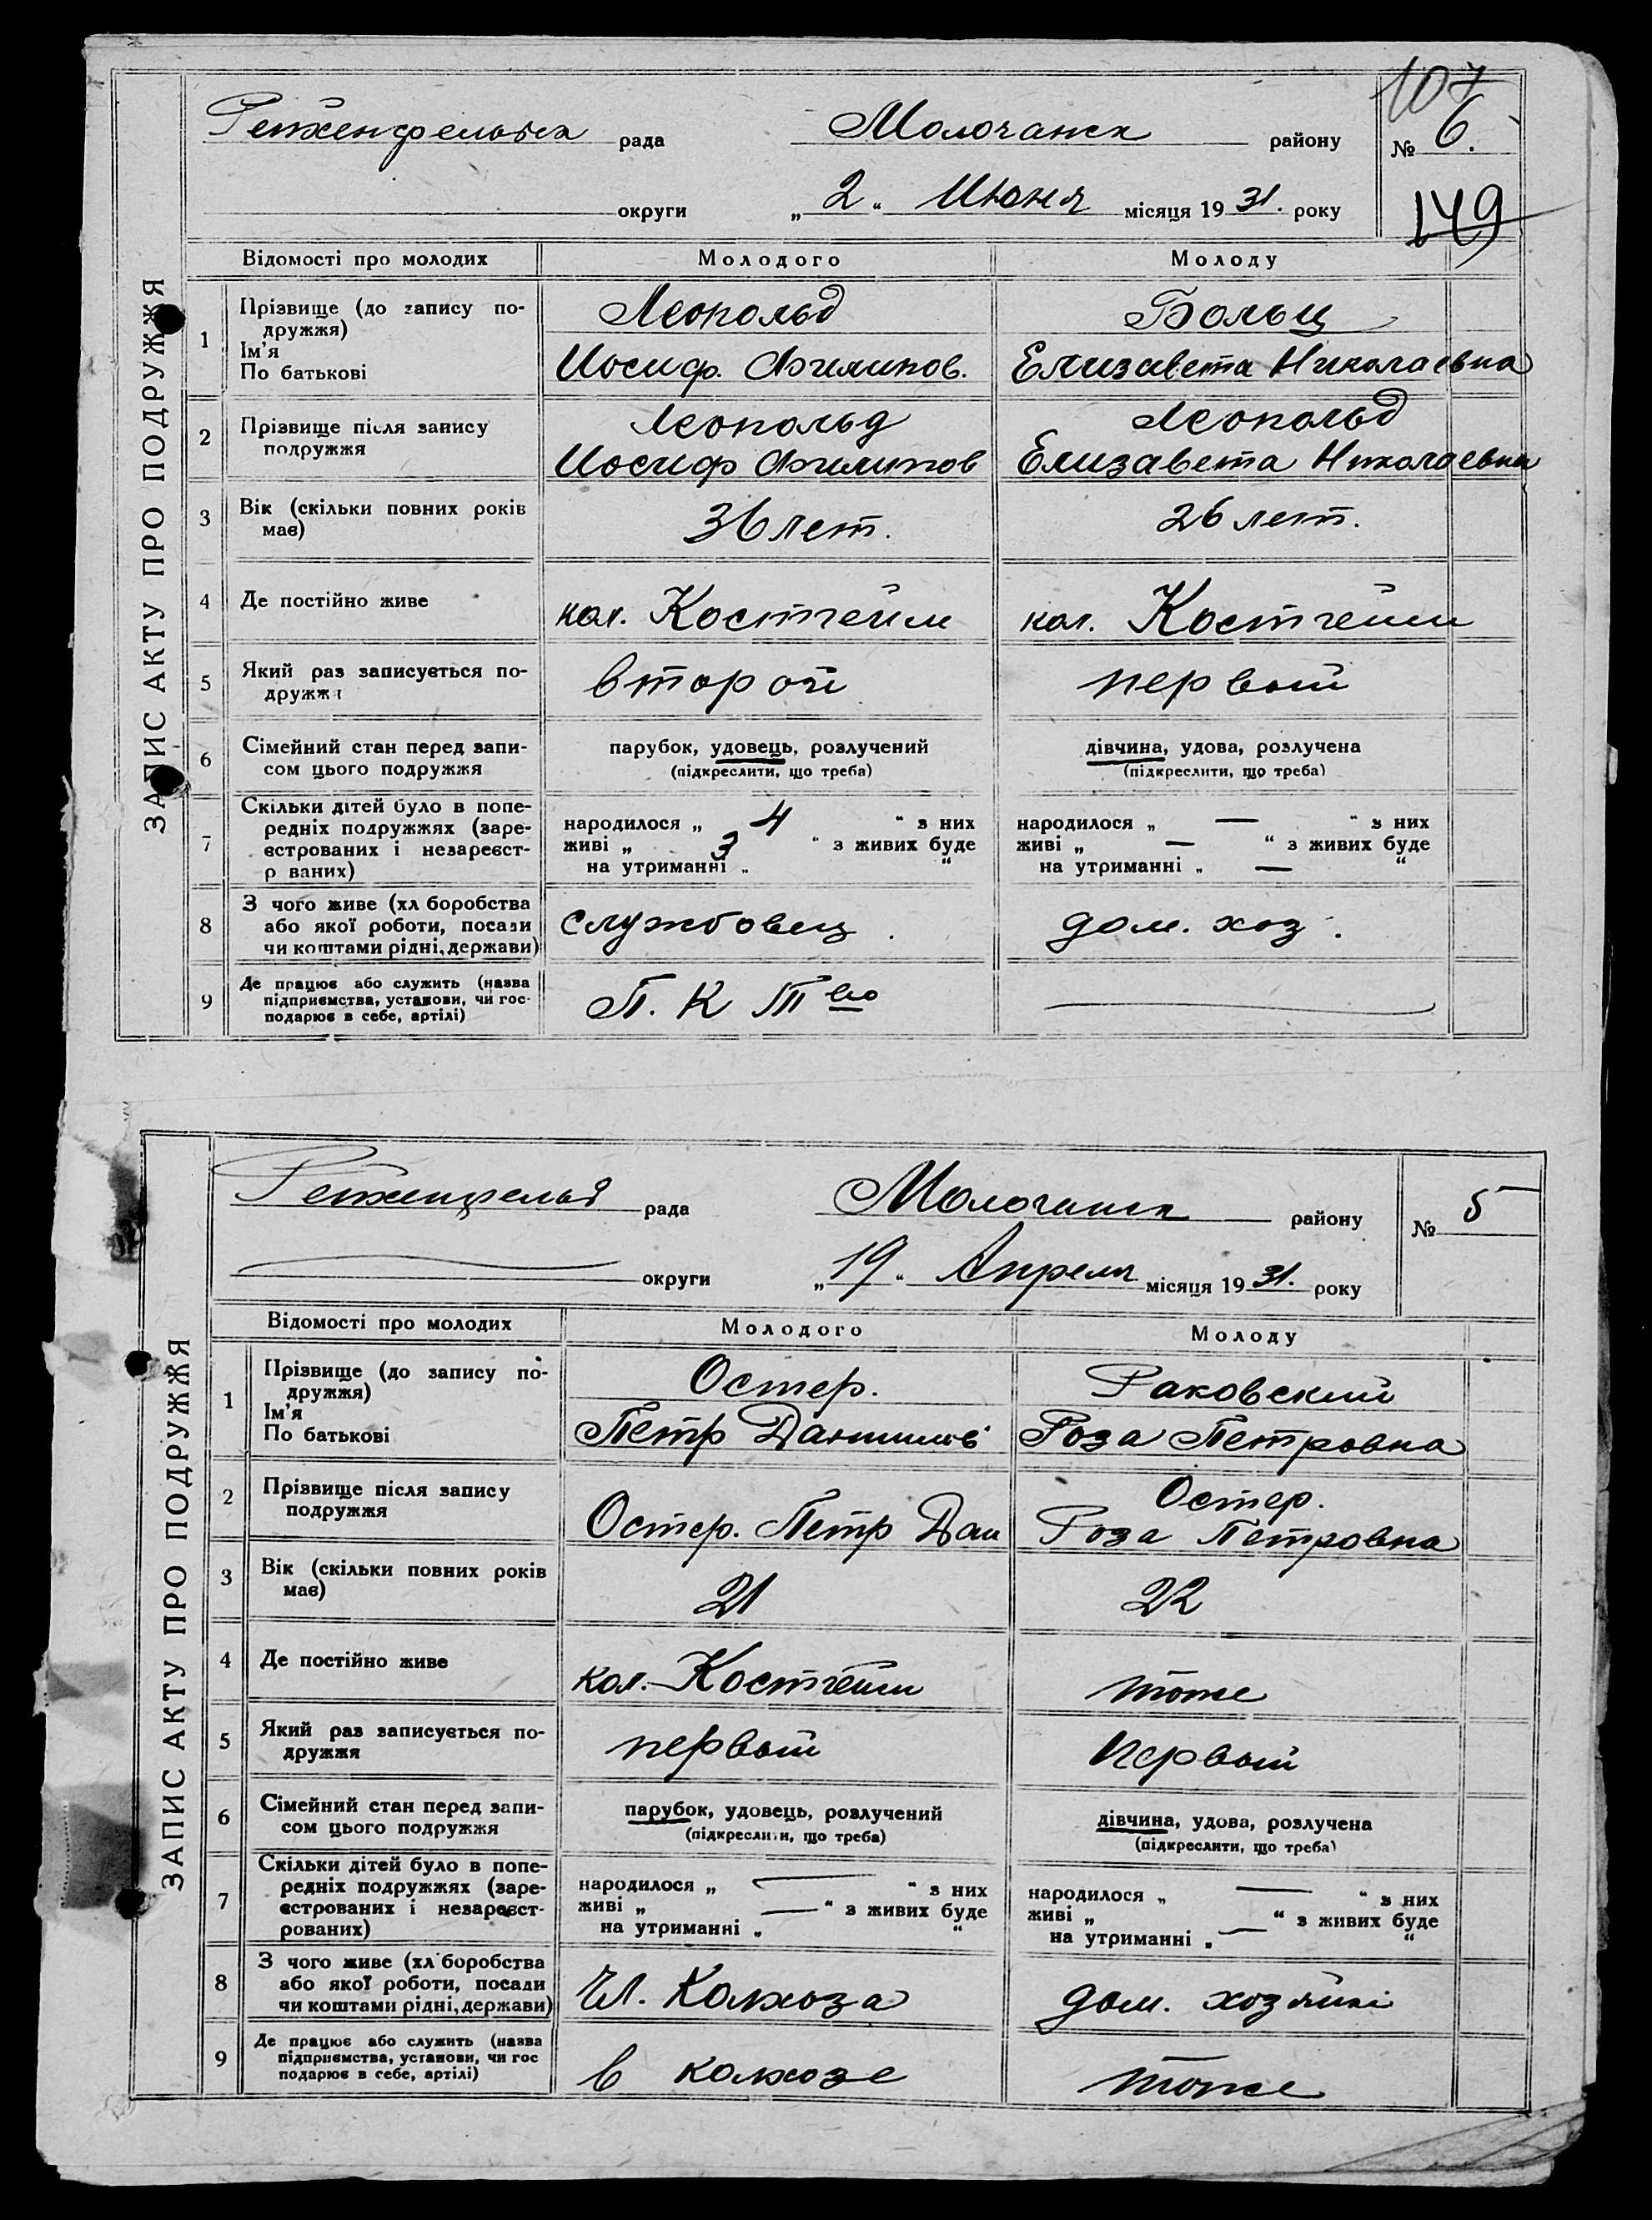 107
Рейхенфельдск рада Молочанск району № 6.
округи „2“ Июня місяця 1931. року
149
ЗАПИС АКТУ ПРО ПОДРУЖЖЯ
Відомості про молодих Молодого Молоду
1 Прізвище (до запису по-
дружжя)
Ім'я
По батькові
Леопольд
Иосиф. Филипов.
Больц
Елизавета Николаевна
2 Прізвище після запису
подружжя
Леопольд
Иосиф Филипов
Леопольд
Елизавета Николаевна
3 Вік (скільки повних років
має)
36 лет. 26 лет.
4 Де постійно живе кол. Костгейм кол. Костгейм
5 Який раз записується по-
дружжя
второй первый
6 Сімейний стан перед запи-
сом цього подружжя
парубок, удовець, розлучений
(підкреслити, що треба)
дівчина, удова, розлучена
(підкреслити, що треба)
7 Скільки дітей було в попе-
редніх подружжях (заре-
єстрованих і незареєст-
р ваних)
народилося „ 4 “ з них
живі „ 3 “ з живих буде
на утриманні „ “
народилося „ — “ з них
живі „ — “ з живих буде
на утриманні „ — “
8 З чого живе (хл боробства
або якої роботи, посади
чи коштами рідні, держави)
службовец. дом. хоз.
9 Де працює або служить (назва
підприємства, установи, чи гос-
подарює в себе, артілі)
П. К Тво —
Рейхенфельд рада Молочанск району № 5
округи „19“ Апреля місяця 1931. року
ЗАПИС АКТУ ПРО ПОДРУЖЖЯ
Відомості про молодих Молодого Молоду
1 Прізвище (до запису по-
дружжя)
Ім'я
По батькові
Остер.
Петр Данилов
Раковский
Роза Петровна
2 Прізвище після запису
подружжя
Остер. Петр Дан
Остер.
Роза Петровна
3 Вік (скільки повних років
має)
21 22
4 Де постійно живе кол. Костгейм тоже
5 Який раз записується по-
дружжя
первый первый
6 Сімейний стан перед запи-
сом цього подружжя
парубок, удовець, розлучений
(підкреслити, що треба)
дівчина, удова, розлучена
(підкреслити, що треба)
7 Скільки дітей було в попе-
редніх подружжях (заре-
єстрованих і незареєст-
рованих)
народилося „ — “ з них
живі „ — “ з живих буде
на утриманні „ “
народилося „ — “ з них
живі „ — “ з живих буде
на утриманні „ “
8 З чого живе (хл боробства
або якої роботи, посади
чи коштами рідні, держави)
Чл. Колхоза дом. хозяйкі
9 Де працює або служить (назва
підприємства, установи, чи гос
подарює в себе, артілі)
в колхозе тоже